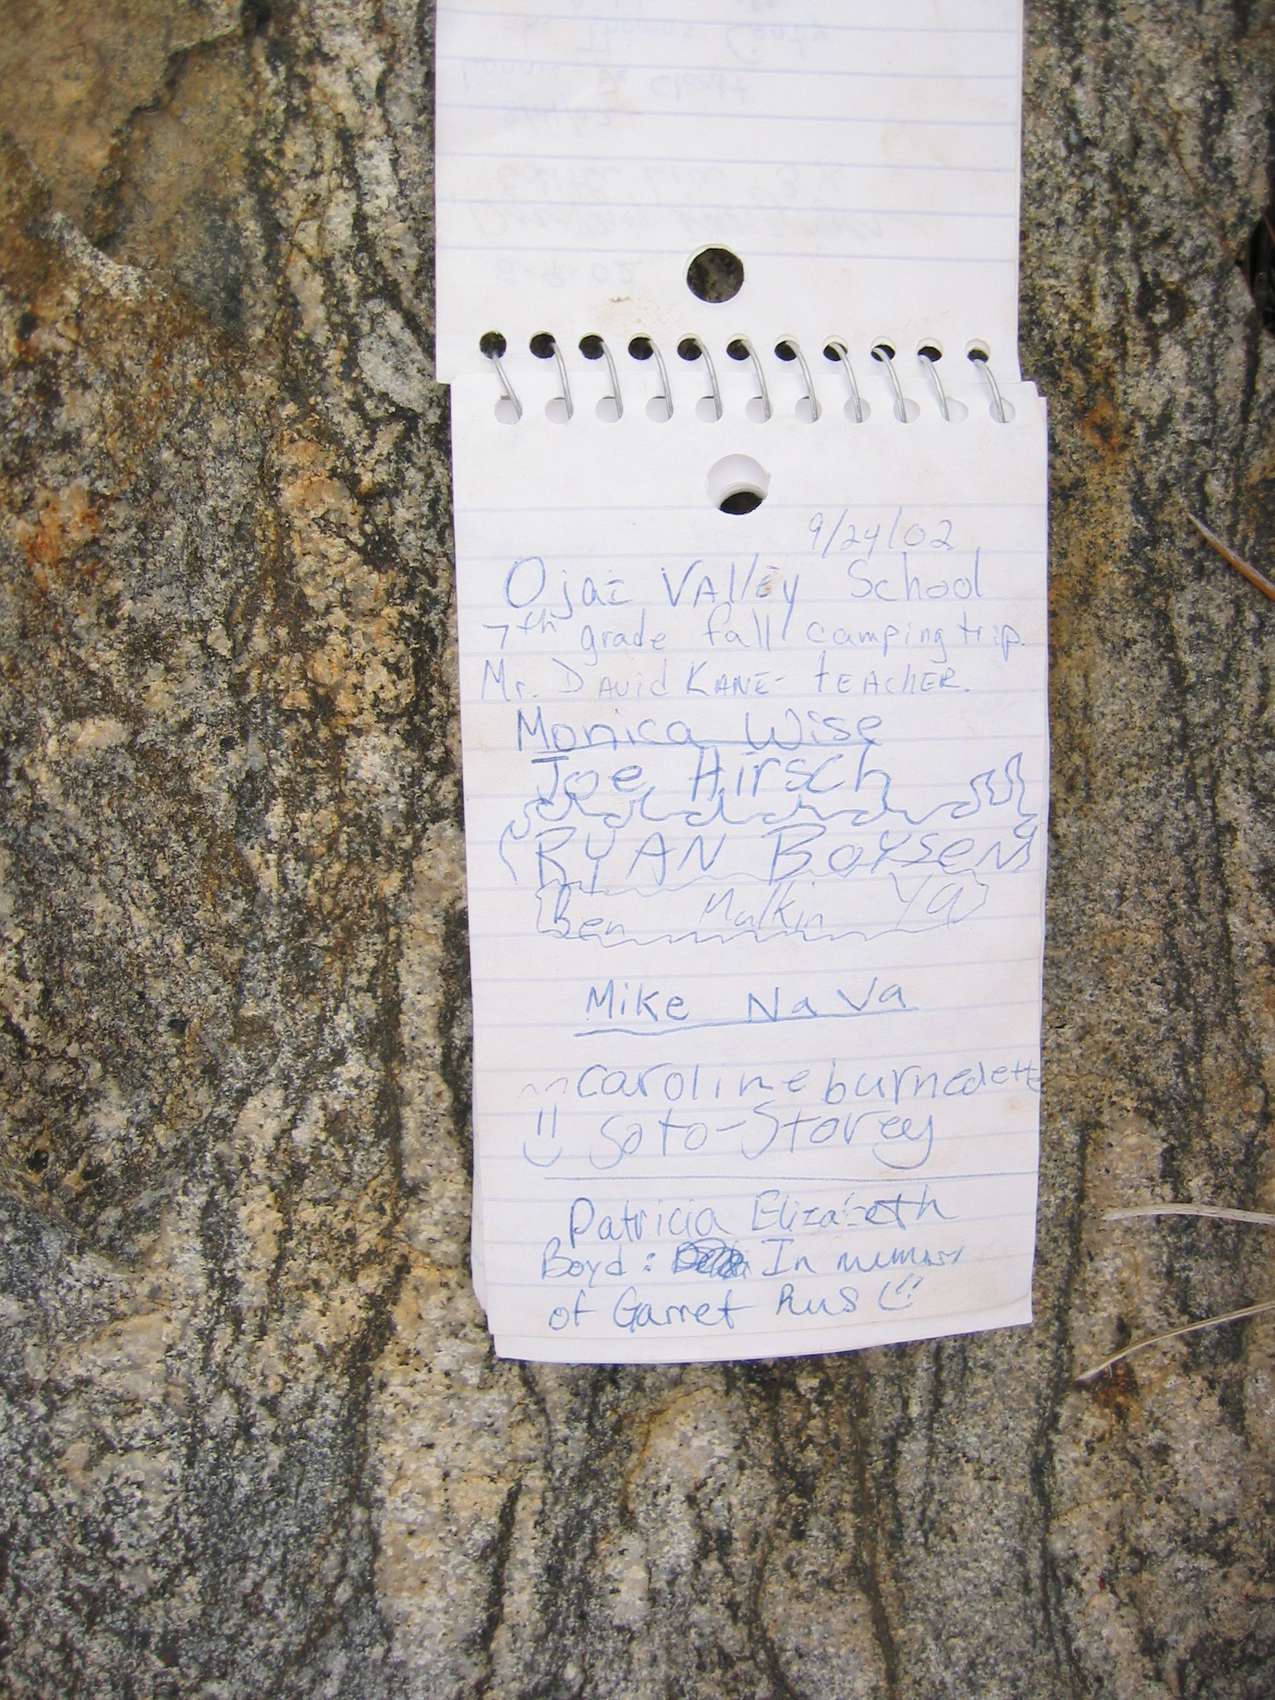 9/24/02
Ojai VAlley School
7th grade fall camping trip.
Mr. DAvid KANE- tEACHER.
Monica Wise
Joe Hirsch
RYAN BOYSEN
Ben Malkin Ya
Mike NaVa
caroline burnedette
soto-Storey
Patricia Elizabeth
Boyd: In memory
of Garret Rus